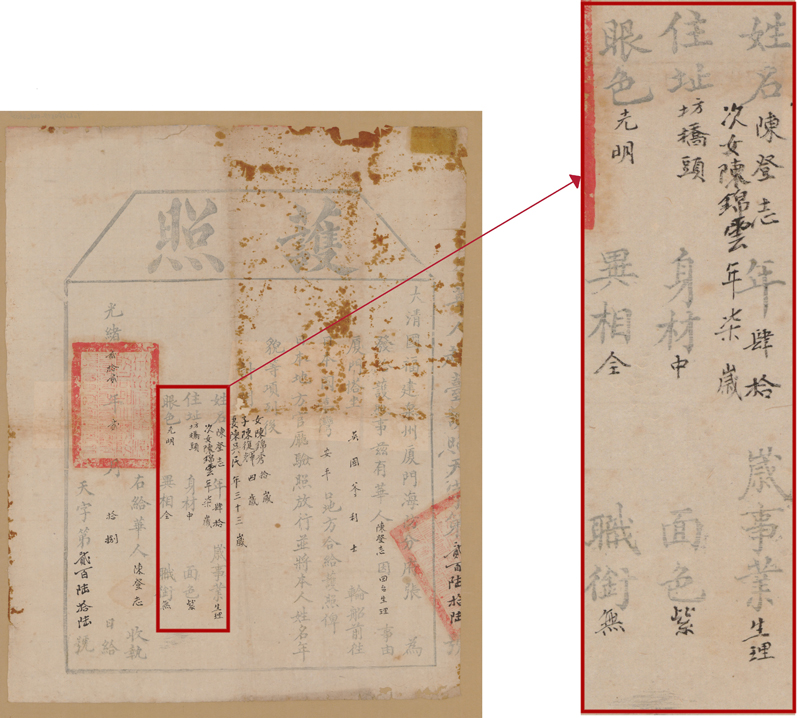 護照
貳百陸拾陸
大清國福建泉州廈門海防分府張 為
發給護照事茲有華人陳登志因回台生理事由
廈門搭坐 英國爹利士 輪船前往
安平口地方合給護照俾
日本地方官廳驗照放行並將本人姓名年
貌等項列後
女陳錦秀 拾歲
子陳復 四歲
妻陳吳氏 年三十三歲
姓名陳登志 年肆拾歲 事業生理
次女陳錦雲 年柒歲
住址坊橋頭 身材中 面色紫
眼色光明 異相仝 職銜無
右給華人陳登志 收執
光緒貳拾貳年 月拾捌日給
天字第貳百陸拾陸號
姓名陳登志 年肆拾歲 事業生理
次女陳錦雲 年柒歲
住址坊橋頭 身材中 面色紫
眼色光明 異相仝 職銜無